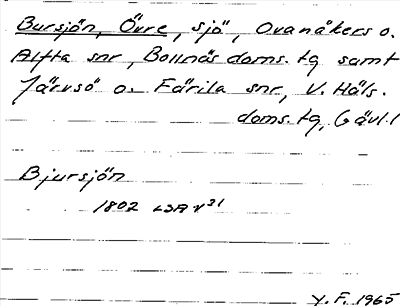 Bursjön, Övre, sjö, Ovanåkers o.
Alfta snr, Bollnäs doms. tg samt
Järvsö o. Färila snr, V. Häls.
doms. tg, Gävl. l
Bjursjön
1802 LSA v²¹
Y. F. 1965